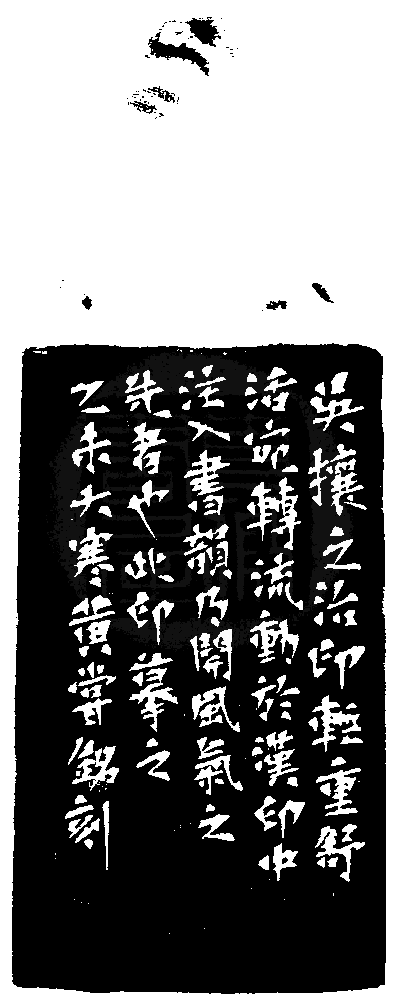 吳攘之治印輕重舒
活宛轉流動於漢印中
注入書韻乃開風氣之
先者也此印摹之
乙未大寒黄嘗銘刻